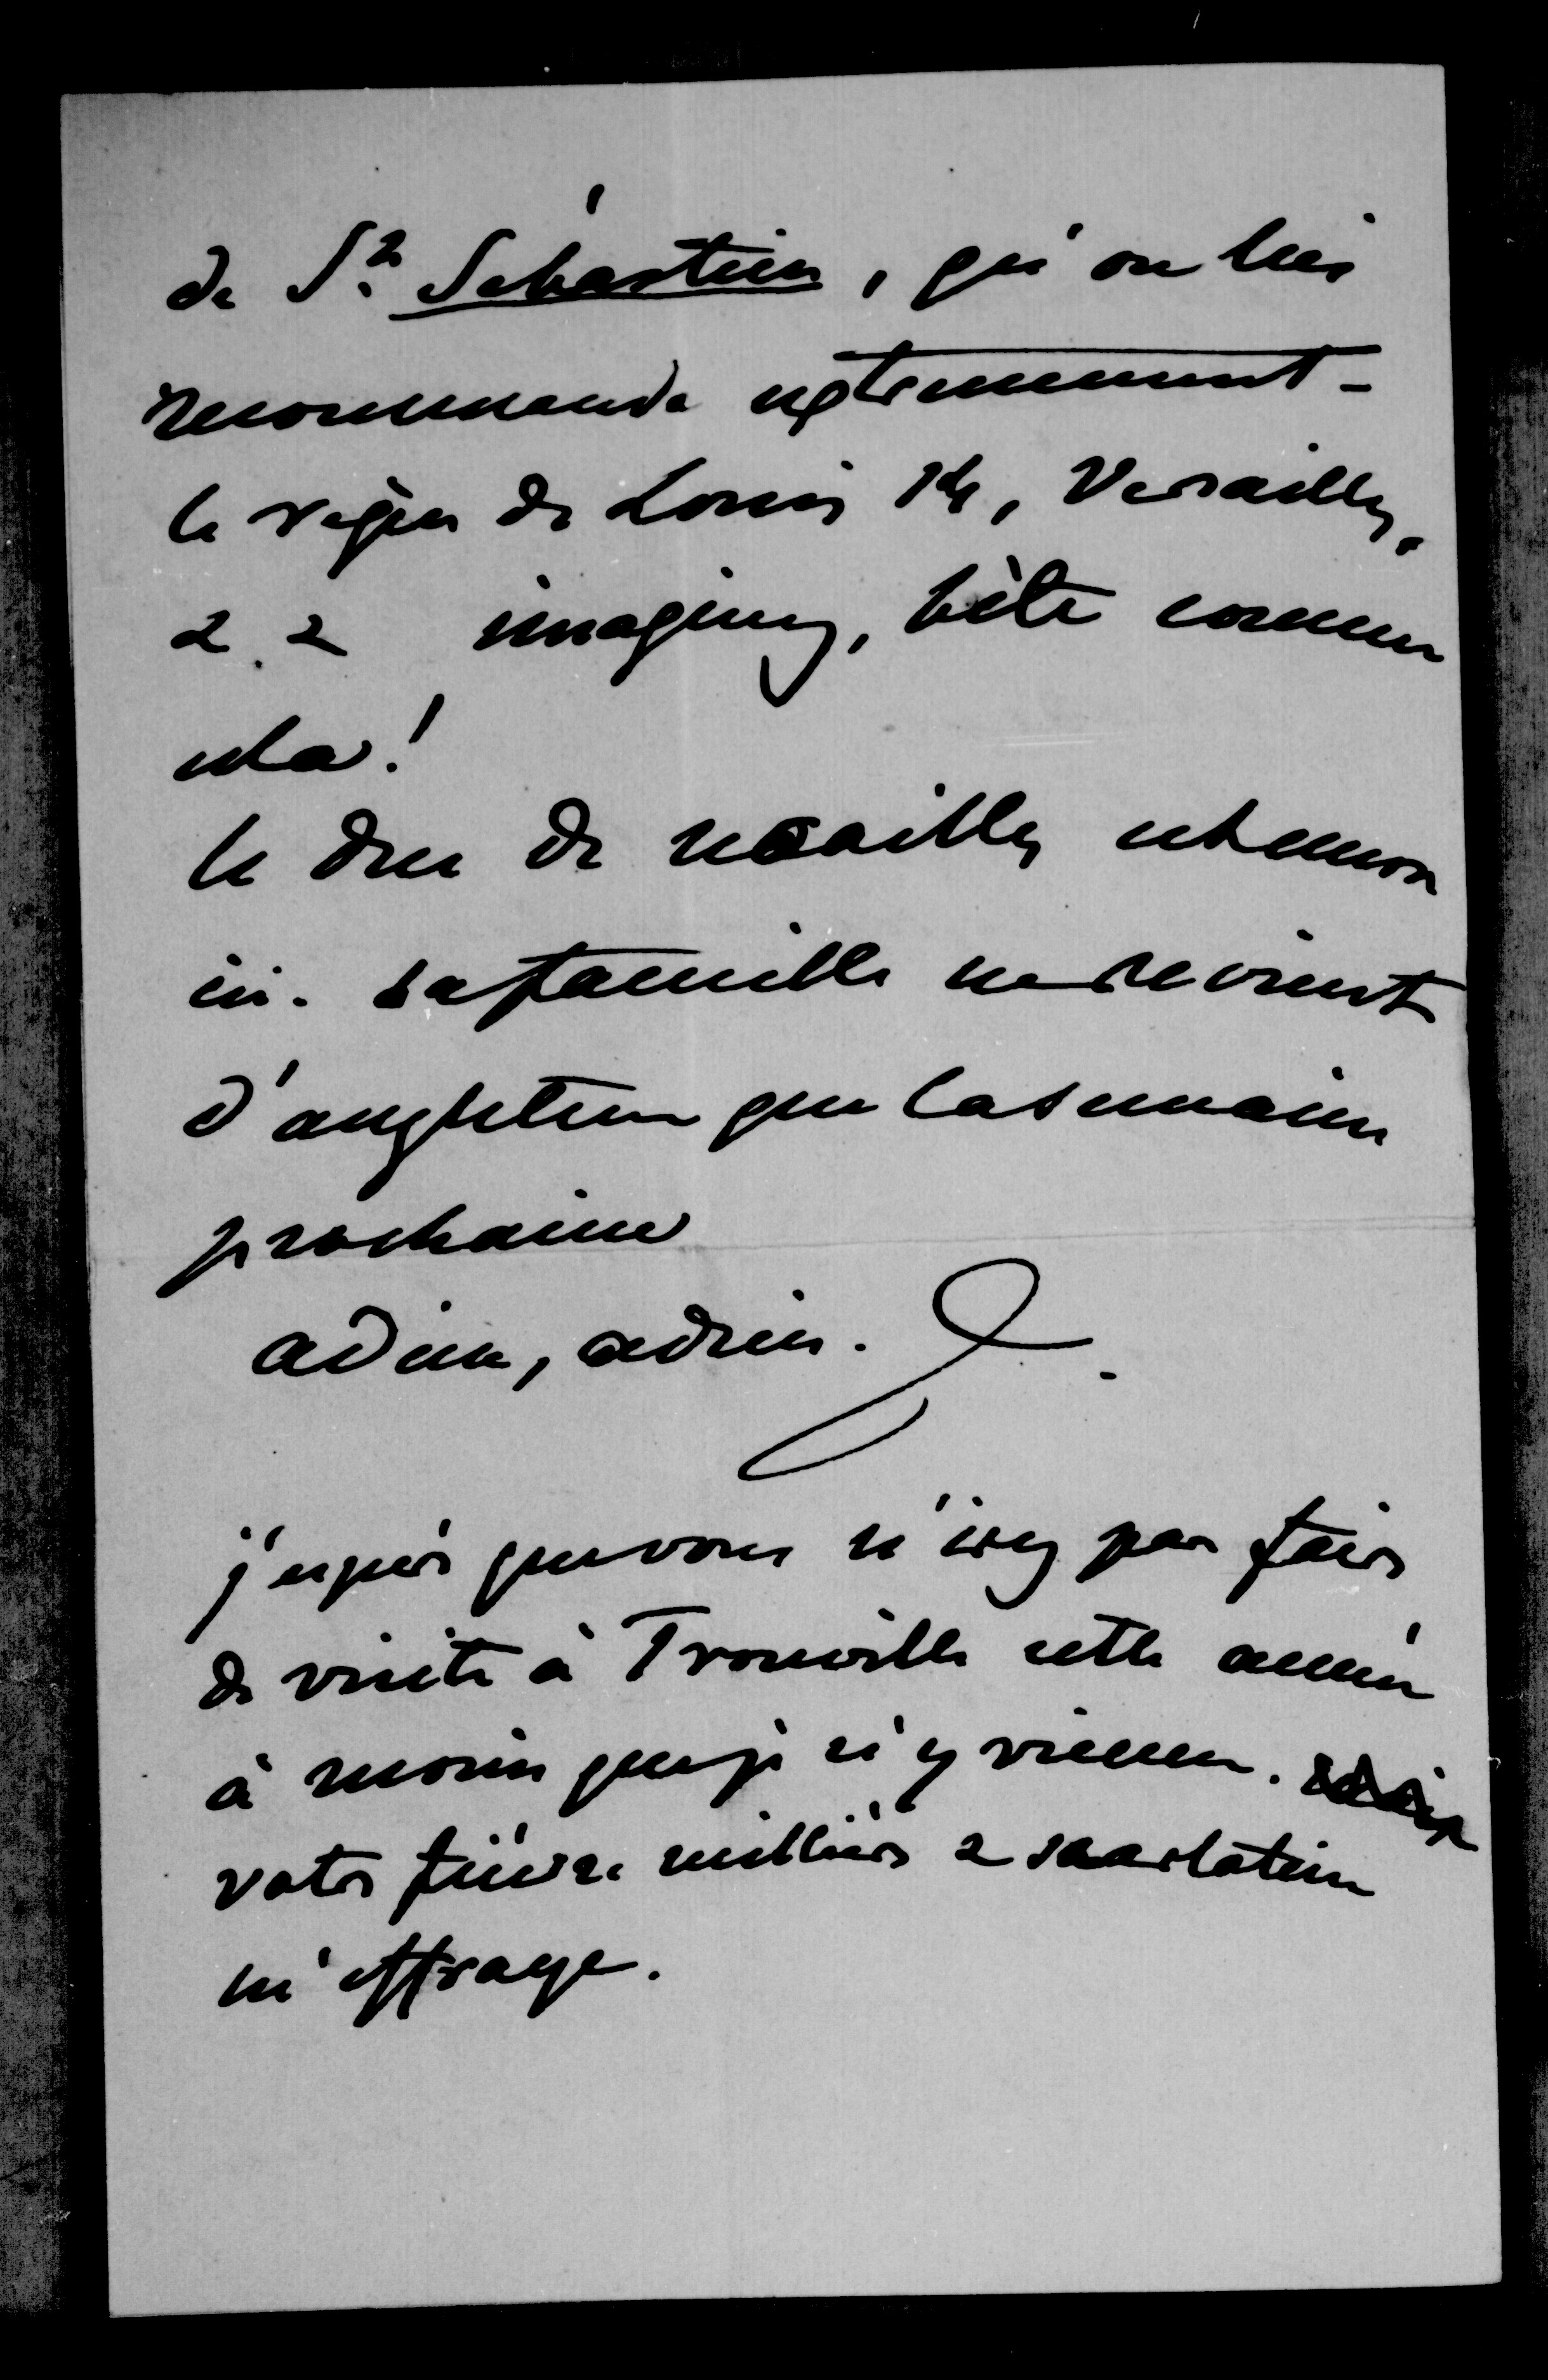 de St Sébastien, qu'on lui
recommande extrêmement -
le règne de Louis 14, Versailles,
& & imaginez, bête comme
cela!
le duc de noailles est encore
ici. sa famille ne revient
d'angleterre que la semaine
prochaine
adieu, adieu.
j'espère que vous n'irez pas faire
de visite à Trouville cette année
à moins que je n'y vienne.
votre fièvre milliaire & scarlatine
m'effraye.